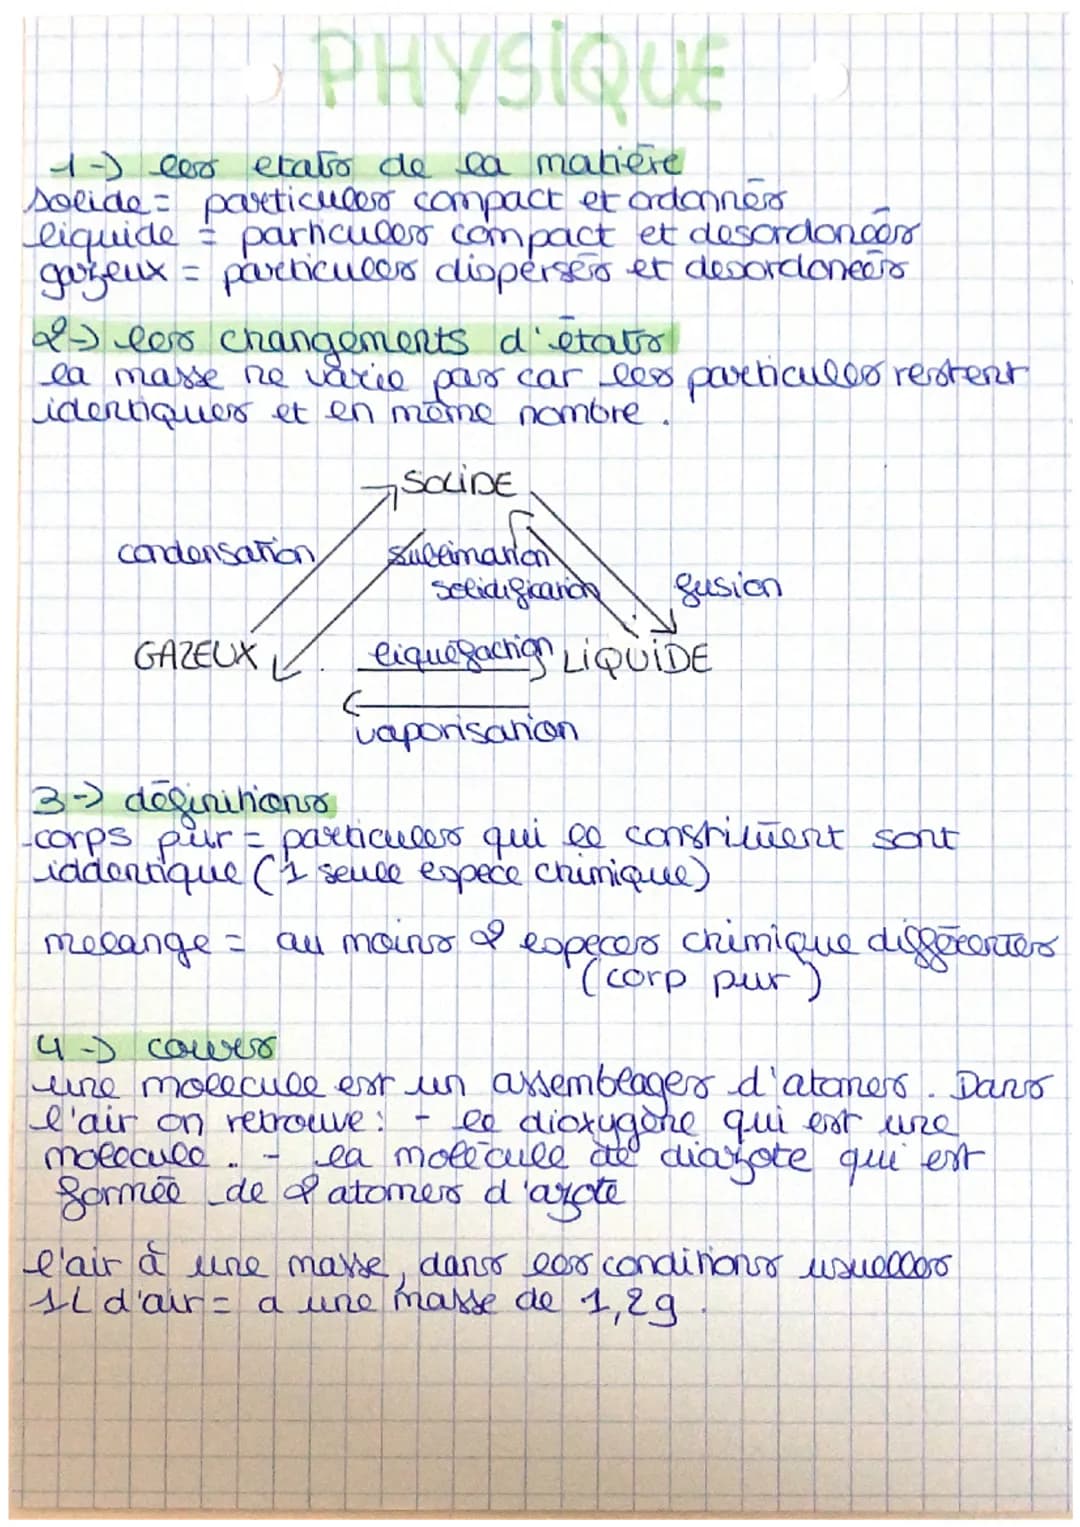 PHYSiQUE
1-> les etats de la matière
solide = particules compact et ordonnés
liquide = particules compact et desordonées
gazeux = particules dispersés et desordoneés
2-> les changements d'états
la masse ne varie pas car les particules restent
identiques et en même nombre.
SOLiDE
condensation
sublimation
solidification
fusion
GAZEUX
liquéfaction
LiQUiDE
vaporisation
3-> définitions
corps pur = particules qui le constituent sont
iddentique (1 seule espece chimique)
melange = au moins 2 especes chimique différentes
(corp pur)
4-> cours
une molecule est un assemblages d'atomes. Dans
l'air on retrouve: - le dioxygène qui est une
molecule. - la molécule de diazote qui est
formée de 2 atomes d'azote
l'air à une masse, dans les conditions usuelles
1L d'air = a une masse de 1,2g.